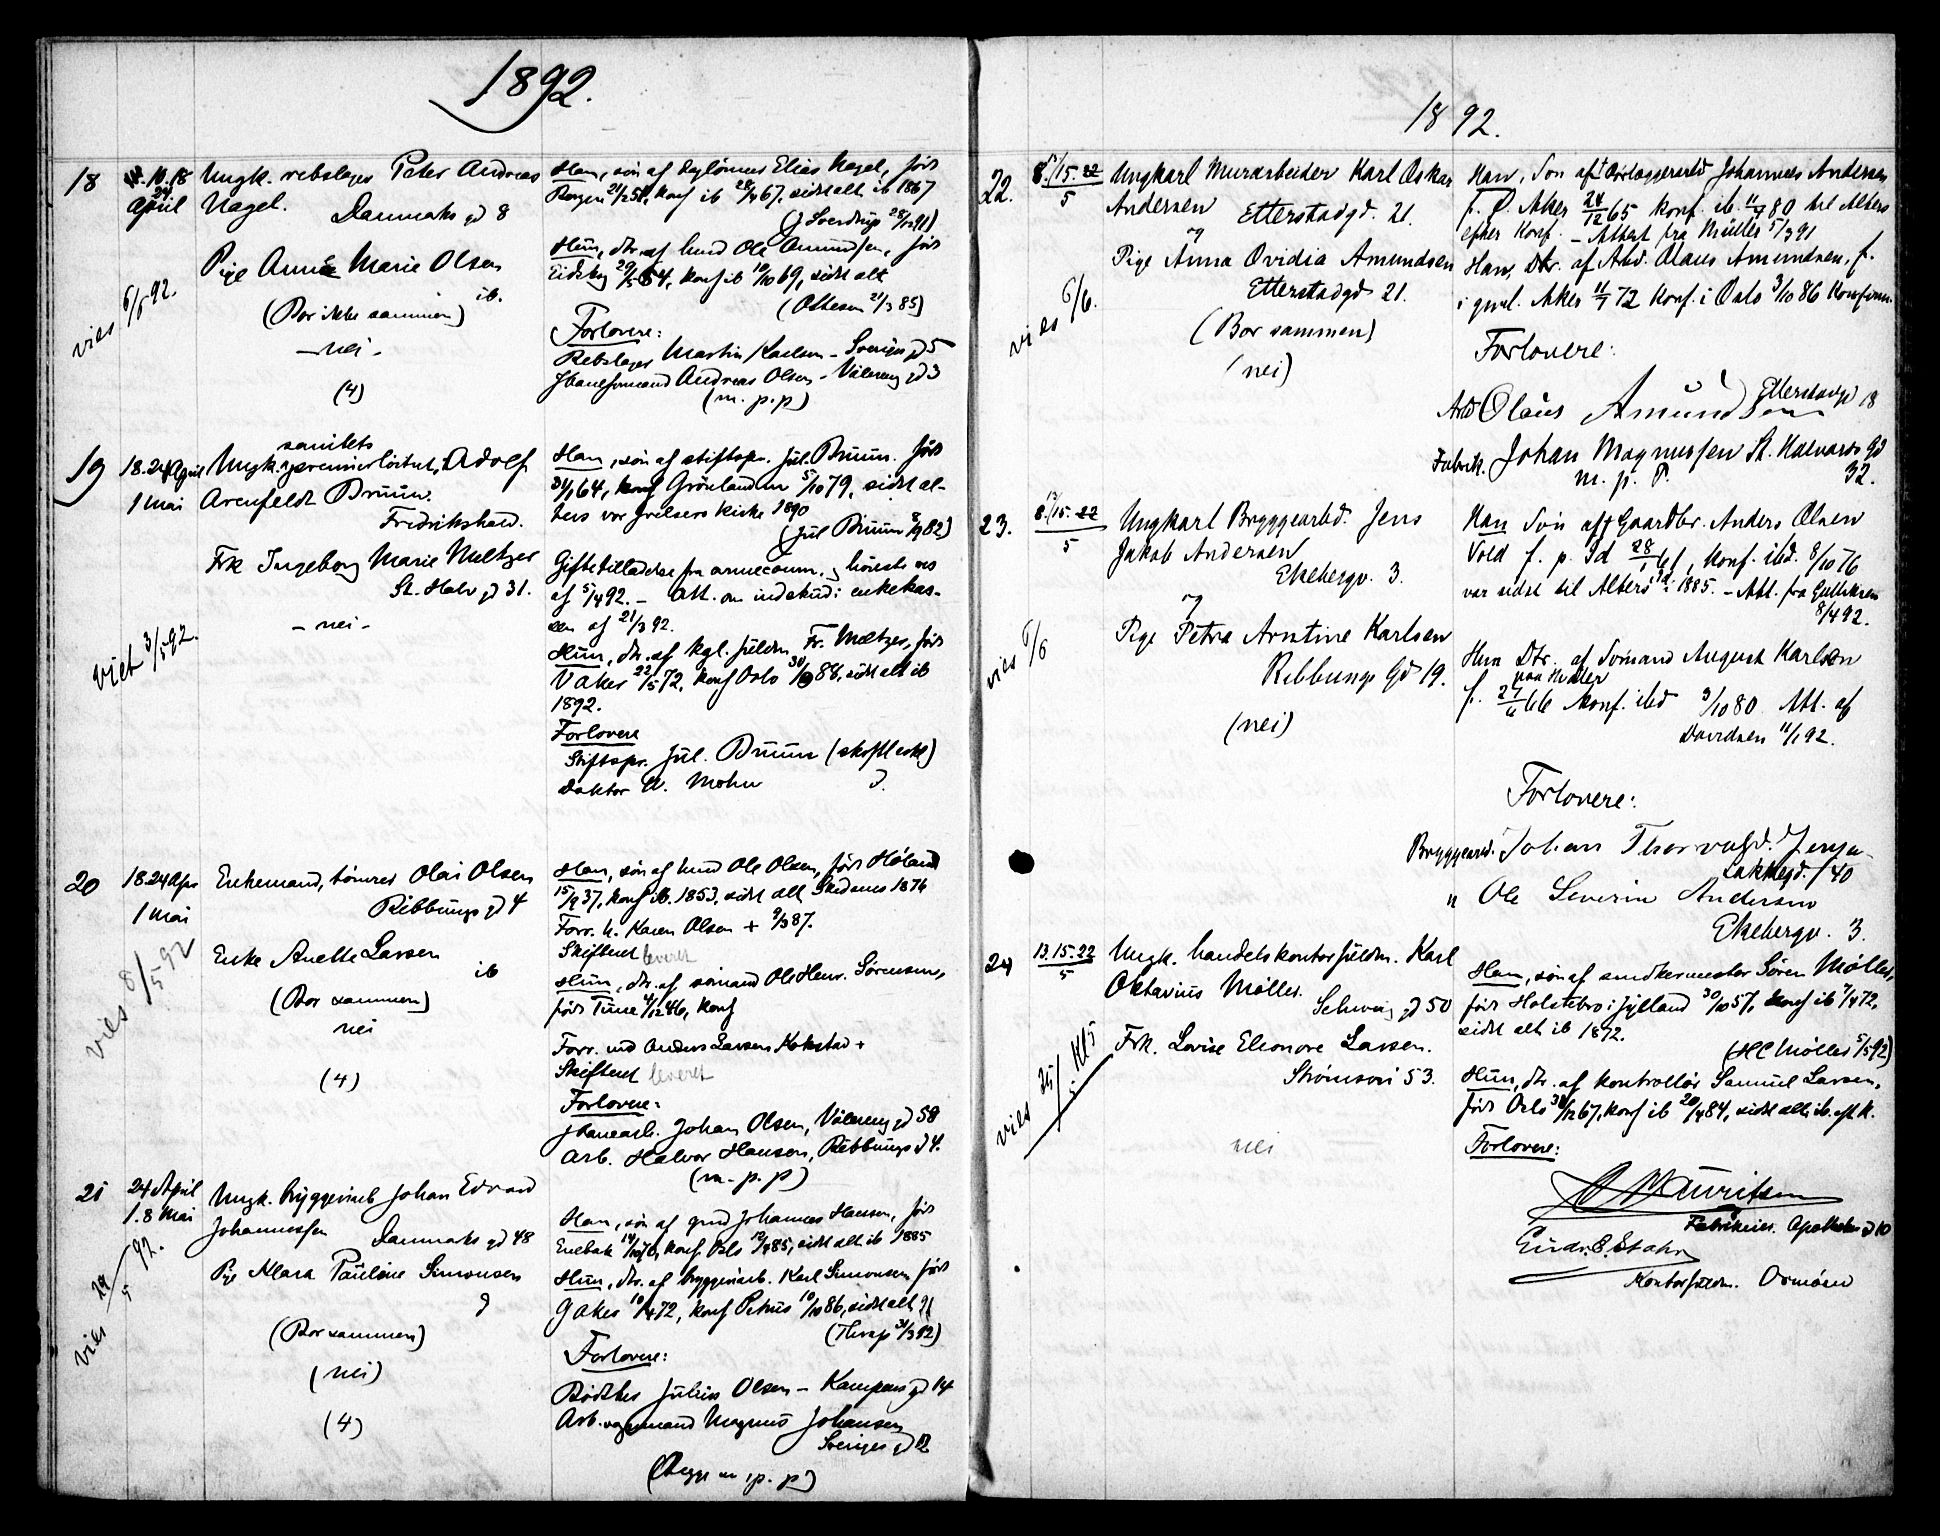 1892.
18
10.18
24
April
Ungk. rebslager Peter Andreas
Nagel. Danmarks gd 8
Pige Anna Marie Olsen
ib.
(Bor ikke sammen)
- nei -
(4)
vies 6/5 92.
Han, søn af Elias Nagel, født
Bergen konf ib 28/4 67, sidst alt ib 1867
(J Sverdrup)
Hun, dtr. af hmd Ole Amundsen, født
Eidsbg konf ib 10/10 69, sidst alt
(Olsen 21/3 85)
Forlovere:
Rebslager Martin Karlsen - Sveriges gd 5
Jbaneformand Andreas Olsen - Vålereng gd 3
(m. p. p)
19
18.24 April
1 Mai
sanitets
Ungk. premierløitnt, Adolf
Arenfeldt Bruun.
Fredrikshald.
Frk Ingeborg Marie Meltzer
St. Halv gd 31.
- nei -
viet 3/5 92.
Han, søn af stiftspr. Jul. Bruun. født
64, konf Grønland 5/10 79, sidst al-
ters vor frelsers kirke 1890
(Jul Bruun 82)
Giftetilladelse fra
af 5/4 92. - Att. om indskud i enkekas-
sen af 21/3 92.
Hun, dtr. af kgl. fuldm. Fr. Meltzer, født
V Aker 22/5 72, konf Oslo sidst alt ib
1892.
Forlovere
Stiftspr. Jul. Bruun
Doktor A. Mohn
20
18.24 Apr
1 Mai
Enkemand, tømres Olai Olsen
Ribbungs gd 4
Enke Anette Larsen
ib
(Bor sammen)
nei
(4)
vies 8/5 92
Han, søn af hmd Ole Olsen, født Høland
15/9 37, konf ib. 1853, sidst alt 1876
Forr. h. Karen Olsen + 9/3 87.
Skiftent leveret
Hun, dtr. af sømand Ole Henr. Sørensen,
født Tune 4/12 46, konf
Forr. md Anders Larsen Kokstad +
Skiftent leveret
Forlovere:
Jbanearb. Johan Olsen, Vålereng gd 58
Arb. Halvor Hansen, Ribbungs gd 4.
(m. p. p)
21
24 April
1.8 Mai
Ungk. bryggeriarb Johan Edvard
Johannessen Danmarks gd 48
Pige Klara Pauline Simonsen
(Bor sammen)
(nei)
(4)
vies 29/5 92.
Han, søn af gmd Johannes Hansen, født
Enebak konf. Oslo sidst alt ib 1885
Hun, dtr. af bryggeriarb. Karl Simonsen født
Ø Aker 10/4 72, konf Petrus 10/10 86, sidst alt 91
(Thrap 31/3 92)
Forlovere:
Bødker Julius Olsen - Kampens gd 14
Arb. Magnus Johansen
Sveriges gd 12
(Begge m. p. p)
1892.
22.
8./15.22
5
Ungkarl Murarbeider Karl Oskar
Andersen Etterstadgd. 21.
og
Pige Anna Ovidia Amundsen
Etterstadgd 21.
(Bor sammen)
(nei)
vies 6/6.
Han, Søn af Johannes Andersen
f. Ø. Aker 24/12 65 konf. ib. 80 til Alters
efter Konf. - Attest fra Müller 5/3 91
Hun, Dtr. af Arb. Olaus Amundsen, f.
i Aker 72 Konf. i Oslo 3/10 86
Forlovere:
Arb Olaus Amundsen Etterstadgd 18
Fabrik. Johan Magnussen St. Halvards Gd
m. p. P. 32.
23.
8./15.22
5
Ungkarl Bryggearbd. Jens
Jakob Andersen
Ekebergv. 3.
og
Pige Petra Arntine Karlsen
Ribbungs Gd 19.
(nei)
vies 6/6
Han Søn af Gaardbr. Anders Olsen
Vold f. p. Id 28/1 61, Konf. ibd. 8/10 76
var sidst til Alters ibd. 1885. - Att. fra Gulliksen
8/4 92.
Hun Dtr. af Sømand August Karlsen
f. 66 Konf. ibd 3/10 80 Att. af
Davidsen 11/1 92.
Forlovere:
Bryggearbd. Johan Thorvald.
Lakkegd. 40
" Ole Severin Andersen
Ekebergv. 3.
24
13.15.22
5
Ungk. handelskontorfuldm. Karl
Oktavius Møller.
Schweig gd 50
Frk. Lovise Eleonore Larsen.
Strømsvei 53.
nei
vies 25/5 Kl 5
Han, søn af snedkermester Søren Møller,
født Holstebro i Jylland 30/10 57, konf ib 7/4 72,
sidst alt ib 1872.
(HC Møller 5/5 92)
Hun, dtr. af kontrollør Samuel Larsen,
født Oslo 67, konf ib 20/4 84, sidst alt. ib. eft k.
Forlovere:
Mauritsen
Fabrikeier. Apotheker gd 10
Kontorfuldm. Ormøen